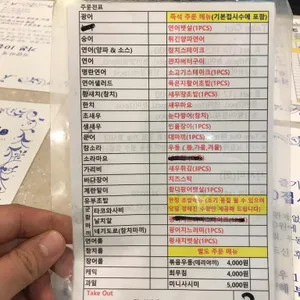 주문전표
광어 즉석 주문 메뉴(기본접시수에 포함)
연어뱃살(1PCS)
숭어 튀긴양파연어
연어(양파 & 소스) 참치스테이크
연어 관자버터구이
명란연어 소고기스테이크(1PCS)
연어샐러드 묵은지활어초밥(1PCS)
황새치(참치) 새우장초밥(1PCS)
한치 새우마요
초새우 눈다랑어(참치)
생새우 민물장어(1PCS)
문어 대마끼(1PCS)
참소라 우동 (봄,가을,겨울)
소라마요
가리비 새우튀김(3PCS)
바다장어 치즈스틱
계란말이 참다랑어뱃살(1PCS)
유부초밥
타코와사비
날치알
네기도로(참치마끼) 광어지느러미(1PCS)
연어롤 황새치뱃살(1PCS)
참치롤 별도 주문 메뉴
장어롤 볶음우동(데리야끼) 4,000원
케익 회무침 4,000원
과일 미니사시미 5,000원
Take Out